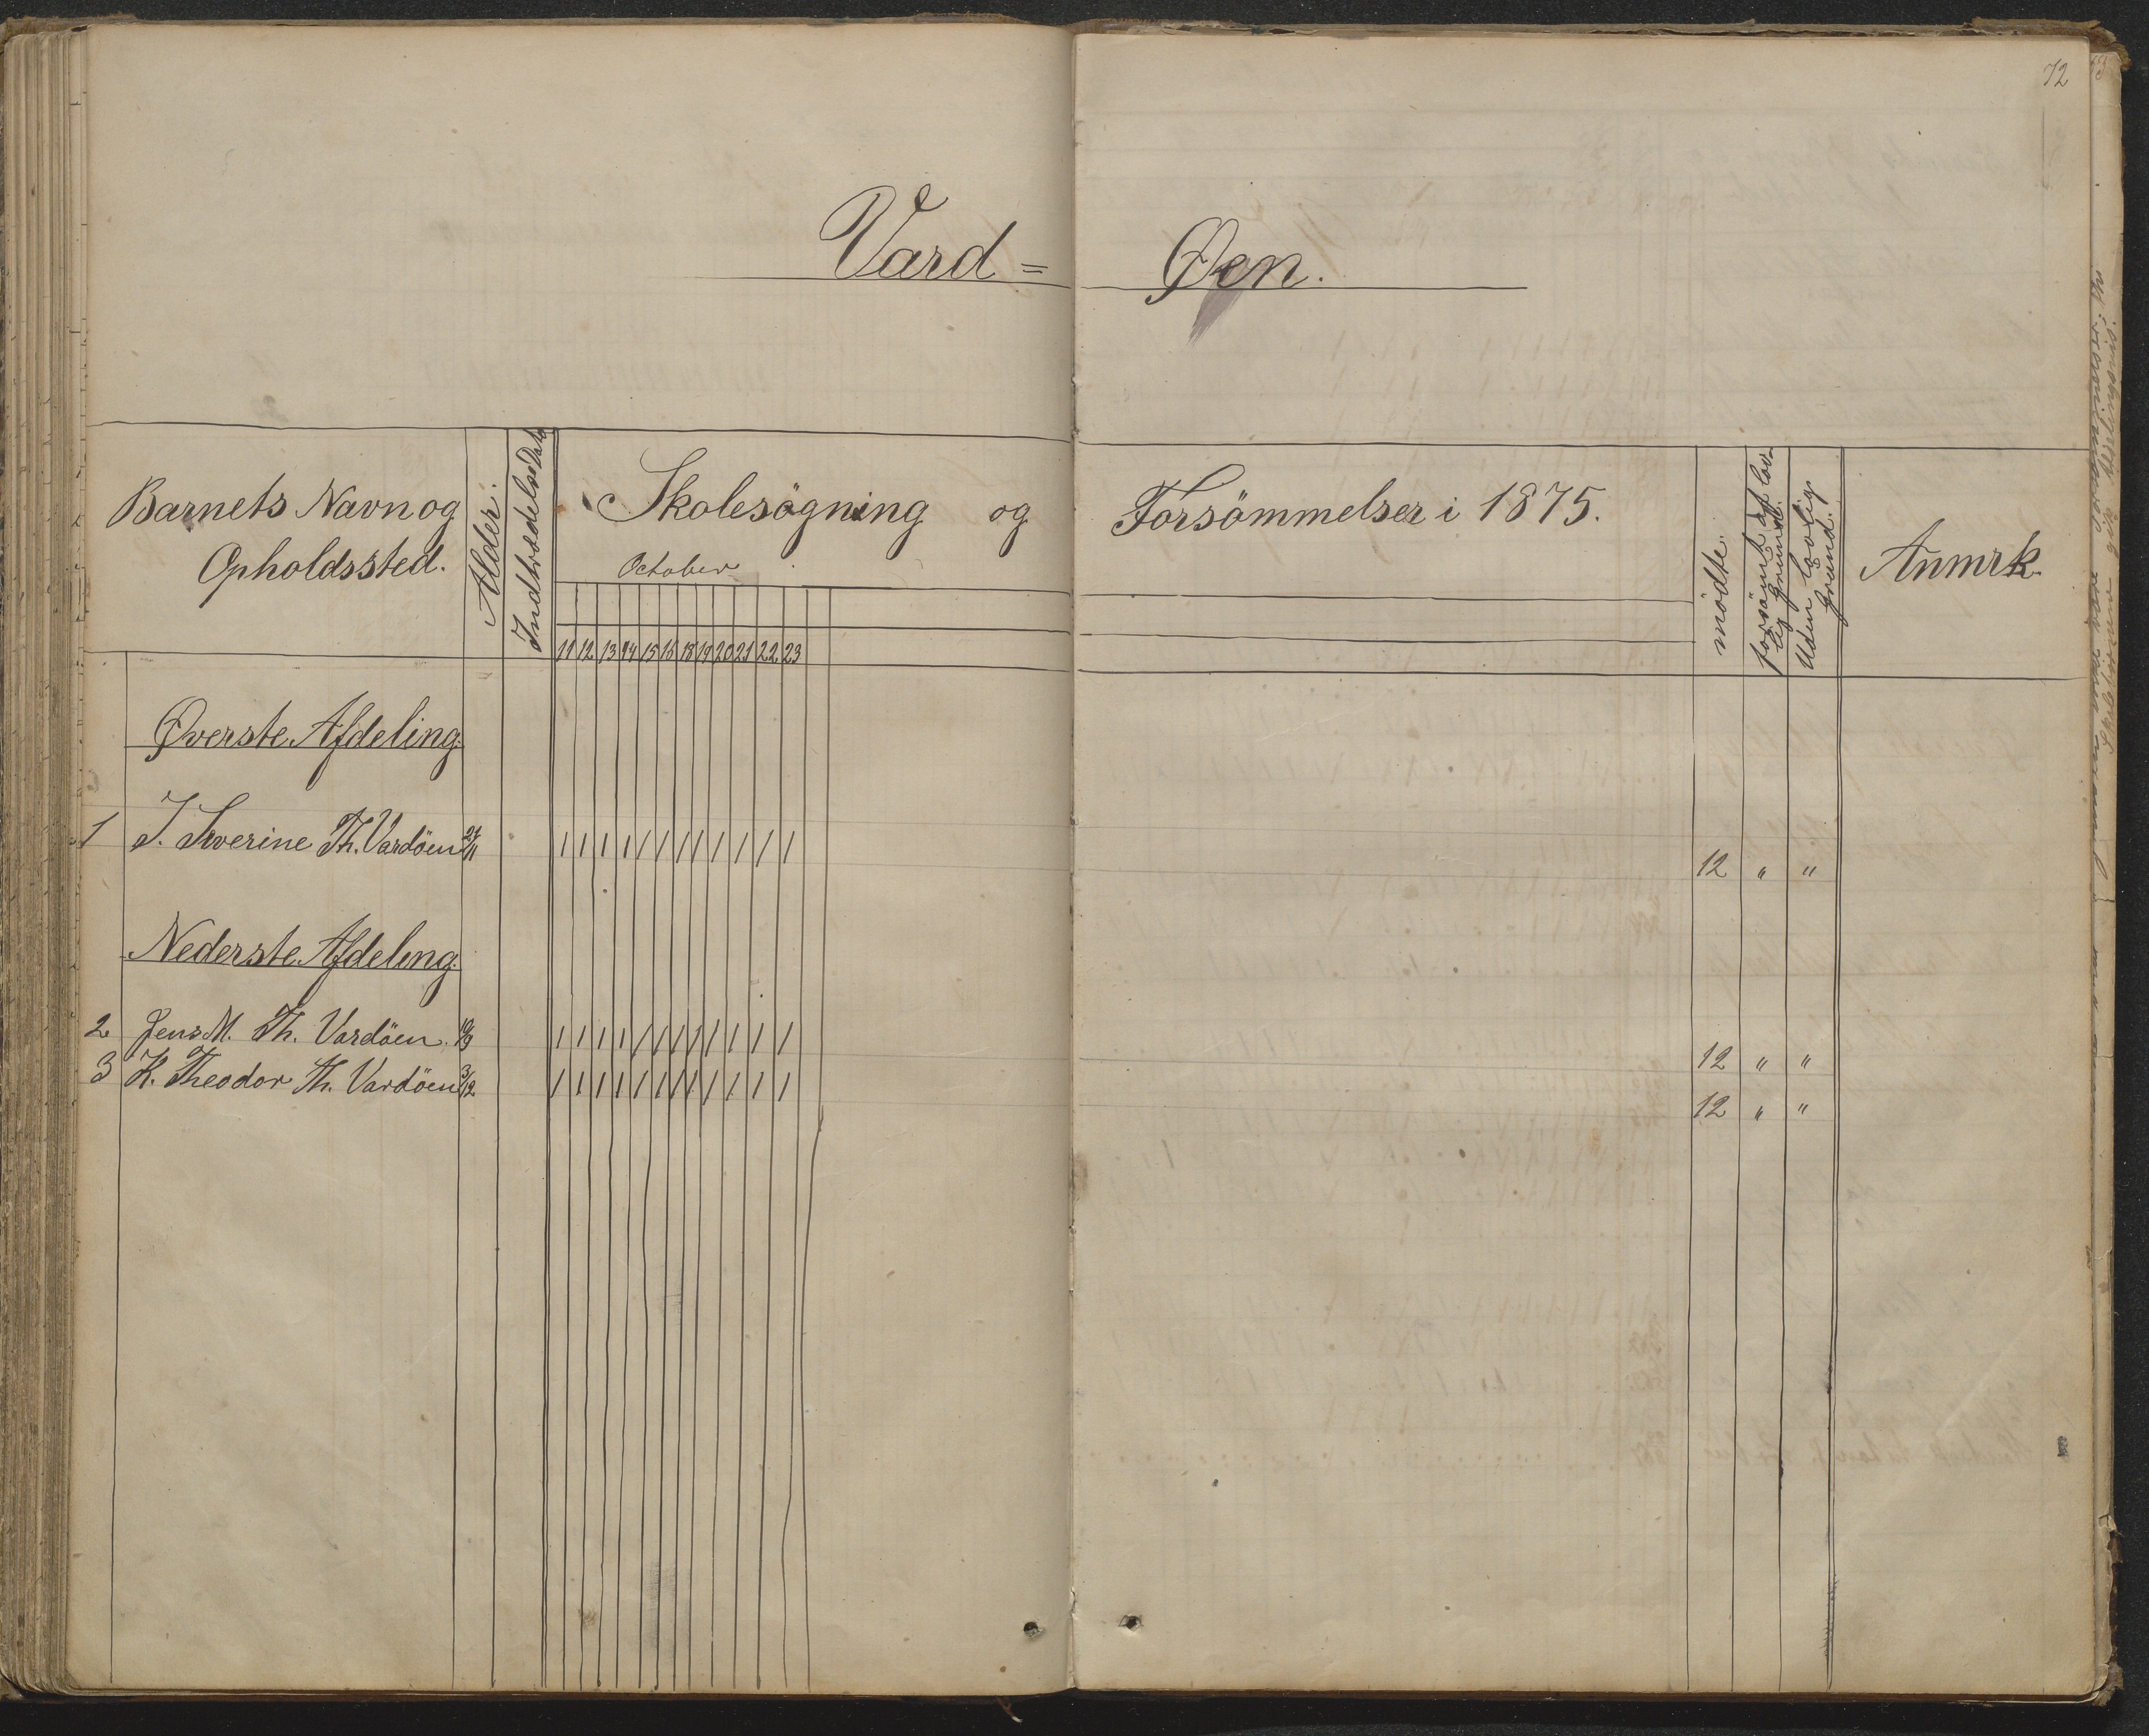 72
Vard= Øen.
Barnets Navn og
Opholdssted.
Alder.
Indtrædelses Dato
Skolesögning og Forsömmelser i 1875.
October
11 12 13 14 15 16 18 19 20 21 22 23
mödte.
forsömt af lov-
lig Grund.
Uden lovlig
Grund.
Anmrk.
Øverste Afdeling.
1 J. Severine Th. Vardöen 21/11 / / / / / / / / / / / / 12 " "
Nederste Afdeling.
2 Jens M. Th. Vardöen. / / / / / / / / / / / / 12 " "
3 K. Theodor Th. Vardöen 3/12 / / / / / / / / / / / / 12 " "